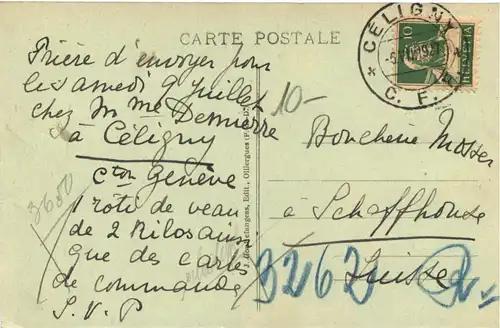 CARTE POSTALE
Prière d'envoyer pour
le samedi 9 Juillet
chez M Mme Demierre
à Céligny
Cton Genève
1 roti de veau
de 2 Kilos ainsi
que des cartes
de commande
S.V.P
10-
3680
Ollliergues (P.-de-D.)
CÉLIGNY
C. F.
10
HELVETIA
Boucherie Mosser
à Schaffhouse
Suisse
3262